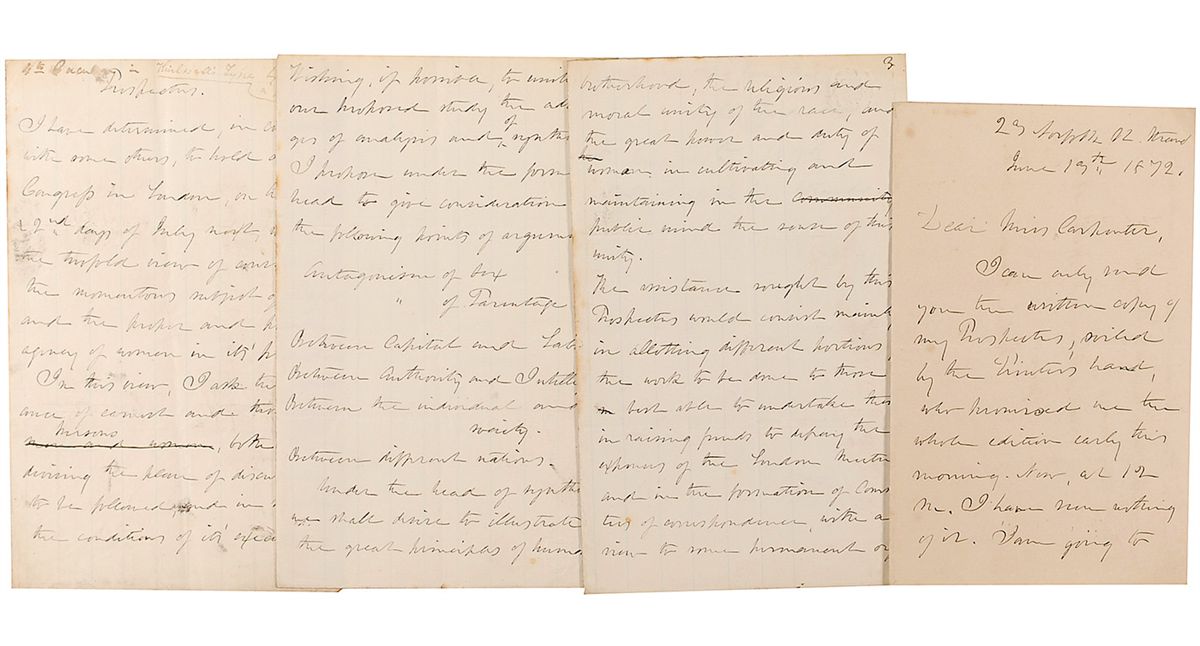 Prospectus.
I have determined, in
with some others, to hold
Congress in London, on
2nd days of July next,
the twofold view of
the momentous subject
and the proper and
agency of women in it's
In this view, I ask the
ance of earnest and
persons
men and women, both
devising the plan of
to be followed, and in
the conditions of it's
Wishing, if possible, to unite
our proposed study the
ges of analysis and of
I propose under the
head to give consideration
the following points of
Antagonism of Sex
" of Parentage
Between Capital and
Between Authority and
Between the individual and
society.
Between different nations.
Under the head of
we shall desire to illustrate
the great principles of
3
brotherhood, the religious and
moral unity of the race, and
the great power and duty of
woman in cultivating and
maintaining in the community
public mind the sense of this
unity.
The assistance sought by this
Prospectus would consist mainly
in allotting different portions
the work to be done to those
best able to undertake this
in raising funds to defray the
expenses of the London
and in the formation of
tees of correspondence, with a
view to some permanent
29 Norfolk St. Strand
June 19th 1872.
Dear Miss Carpenter,
I can only send
you the written copy of
my Prospectus, soiled
by the Printer's hand,
who promised me the
whole edition early this
morning. Now, at 12
M. I have seen nothing
of it. I am going to